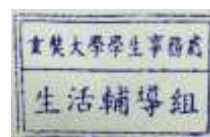 大學學生事務處
生活輔導組